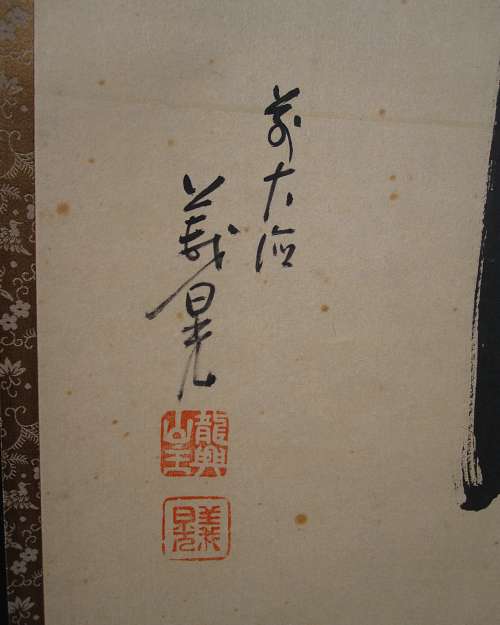 前大徳
義晃
龍興山主
義晃